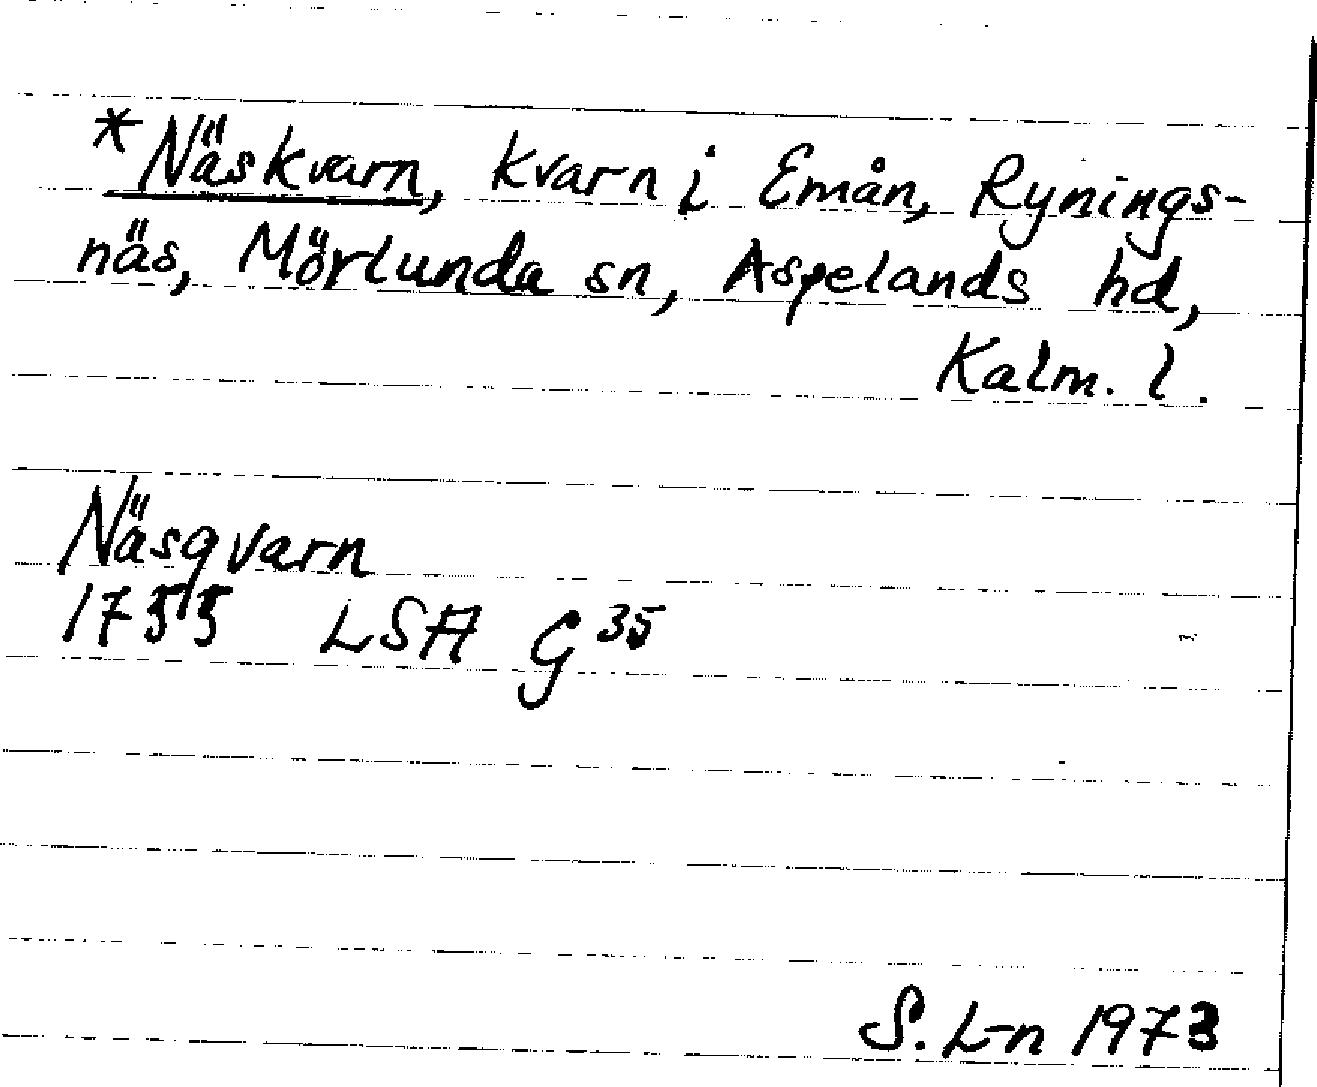 *Näskvarn, kvarn i Emån, Rynings-
näs, Mörlunda sn, Aspelands hd,
Kalm. l.
Näsqvarn
1755 LSA G 35
S. L-n 1973